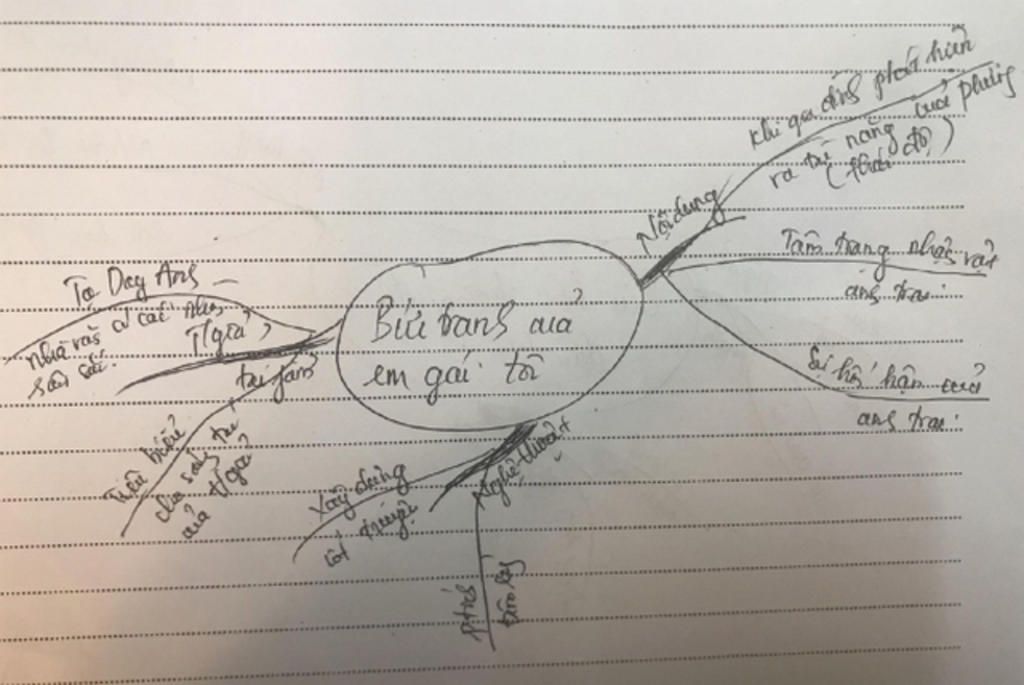 Bức tranh của
em gái tôi
Nội dung
Khi gia đình phát hiện
ra tài năng của Phương
(thái độ)
Tâm trạng nhân vật
anh trai
Sự hối hận của
anh trai
Nghệ thuật
Xây dựng
cốt truyện
P.tích
tâm lý
T/giả,
Tạ Duy Anh
nhà văn có cái nhìn
sâu sắc.
tác phẩm
Tiêu biểu
cho sáng tác
của t/giả